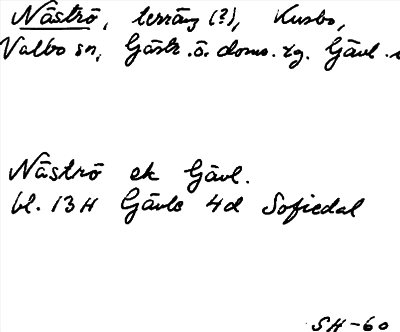 Näströ, terräng (?), Kusbo,
Valbo sn, Gästr. ö. doms. rg. Gävl.
Näströ ek Gävl.
bl. 13 H Gävle 4d Sofiedal
SH-60